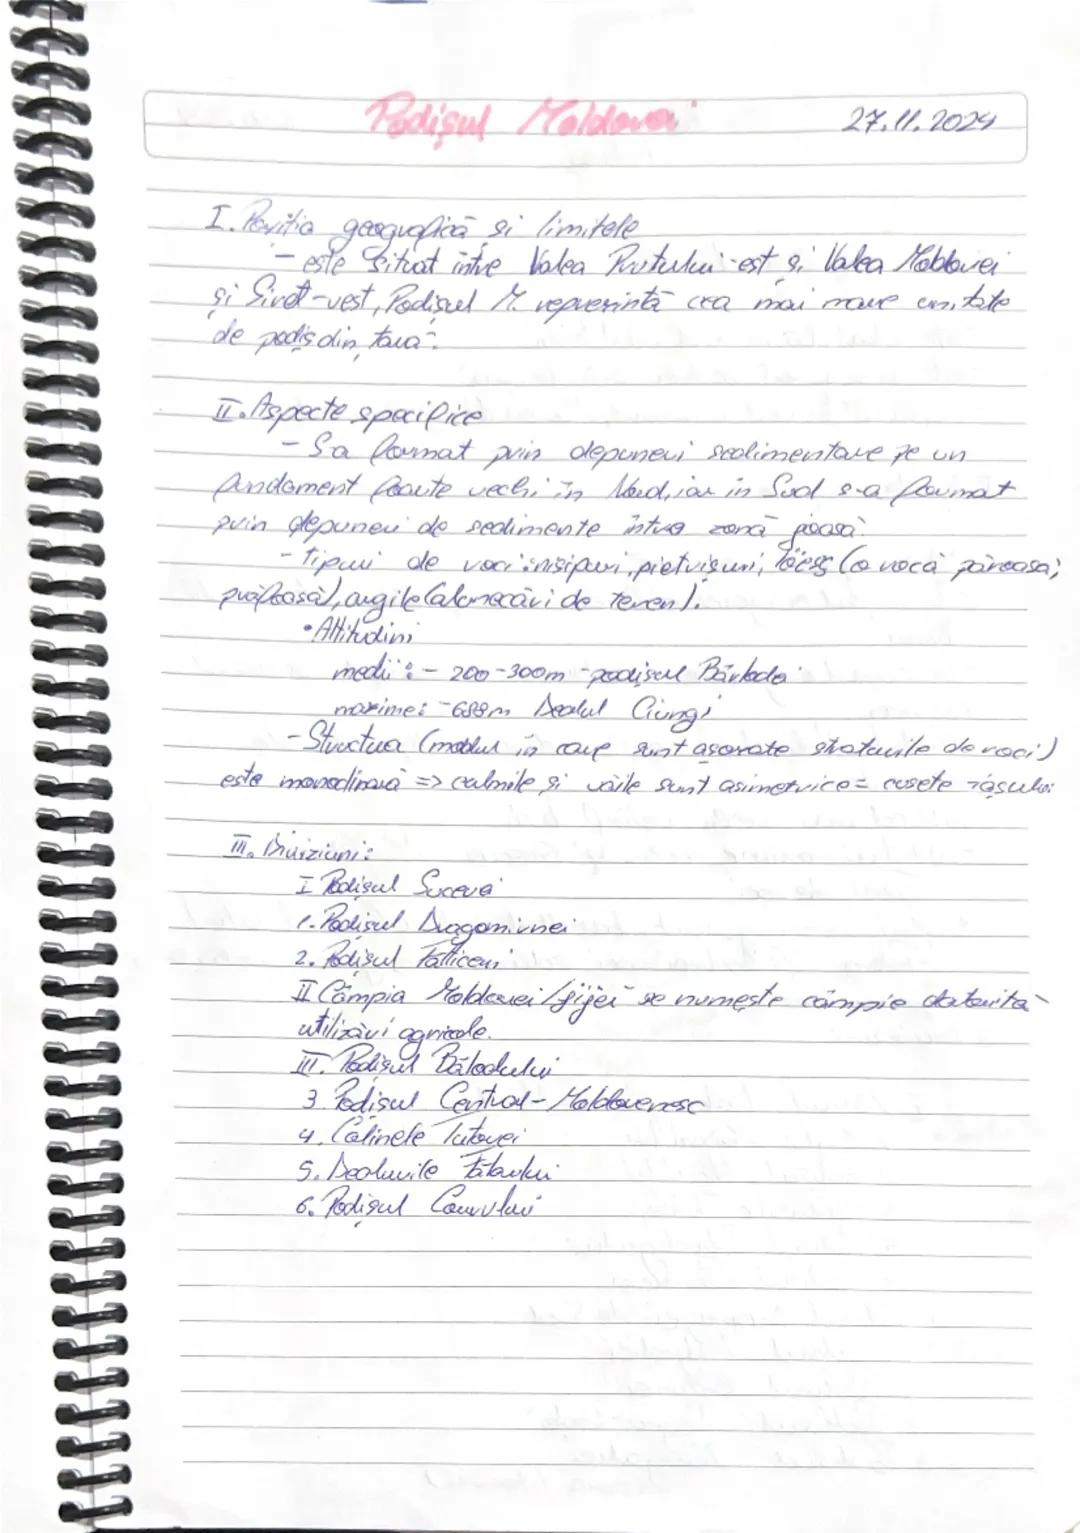 Podișul Moldovei 27.11.2024
I. Poziția geografică și limitele
- este situat între Valea Prutului-est și Valea Moldovei
și Siret-vest, Podișul M. reprezintă cea mai mare unitate
de podiș din țară.
II. Aspecte specifice
- S-a format prin depuneri sedimentare pe un
fundament foarte vechi în Nord, iar în Sud s-a format
prin depuneri de sedimente într-o zonă joasă.
- tipuri de roci: nisipuri, pietrișuri, loess (o rocă
prăfoasă), argile (alunecări de teren).
• Altitudini
medii: - 200-300m - podișul Bârlada
maxime: - 688m Dealul Ciungi
- Structura (modul în care sunt așezate straturile de roci)
este monoclinară => culmile și văile sunt asimetrice =
III. Diviziuni:
I Podișul Sucevei
1. Podișul Dragomirnei
2. Podișul Fălticeni
II Câmpia Moldovei/Jijiei se numește câmpie datorită
utilizări agricole.
III. Podișul Bâladului
3. Podișul Central-Moldovenesc
4. Colinele Tutovei
5. Dealurile Fălciului
6. Podișul Covurlui